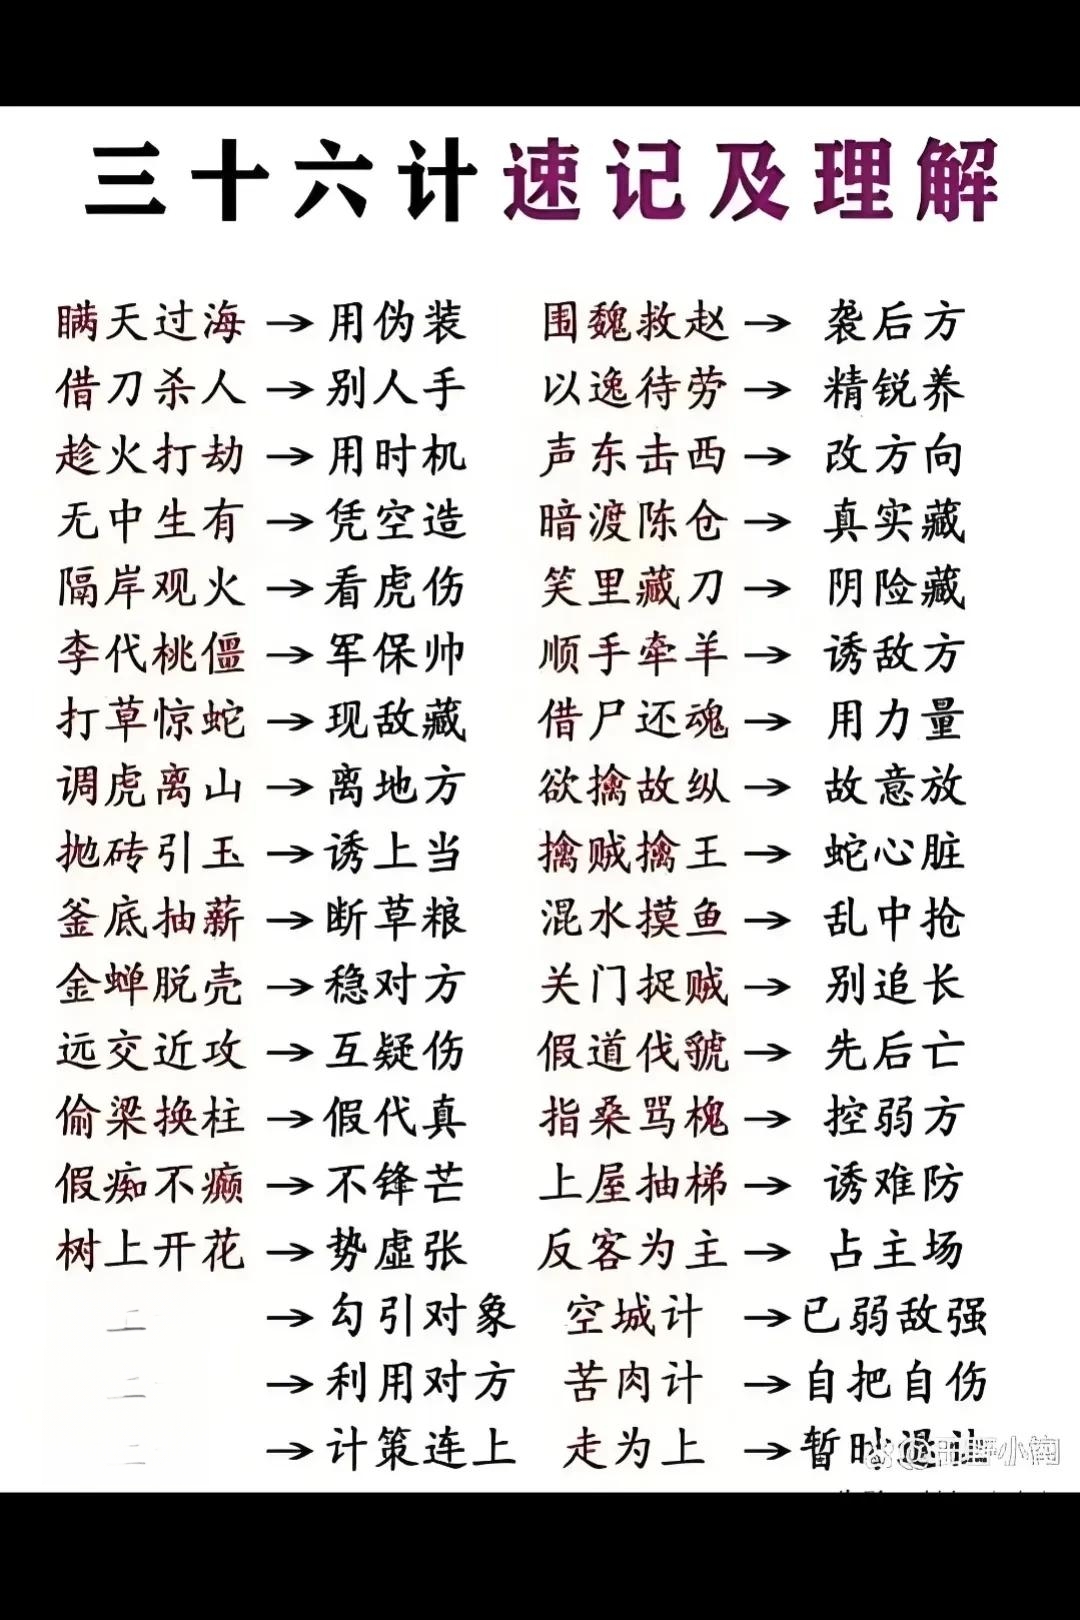 三十六计速记及理解
瞒天过海→用伪装 围魏救赵→袭后方
借刀杀人→别人手 以逸待劳→精锐养
趁火打劫→用时机 声东击西→改方向
无中生有→凭空造 暗渡陈仓→真实藏
隔岸观火→看虎伤 笑里藏刀→阴险藏
李代桃僵→军保帅 顺手牵羊→诱敌方
打草惊蛇→现敌藏 借尸还魂→用力量
调虎离山→离地方 欲擒故纵→故意放
抛砖引玉→诱上当 擒贼擒王→蛇心脏
釜底抽薪→断草粮 混水摸鱼→乱中抢
金蝉脱壳→稳对方 关门捉贼→别追长
远交近攻→互疑伤 假道伐虢→先后亡
偷梁换柱→假代真 指桑骂槐→控弱方
假痴不癫→不锋芒 上屋抽梯→诱难防
树上开花→势虚张 反客为主→占主场
→勾引对象 空城计→已弱敌强
→利用对方 苦肉计→自把自伤
→计策连上 走为上→暂时退让